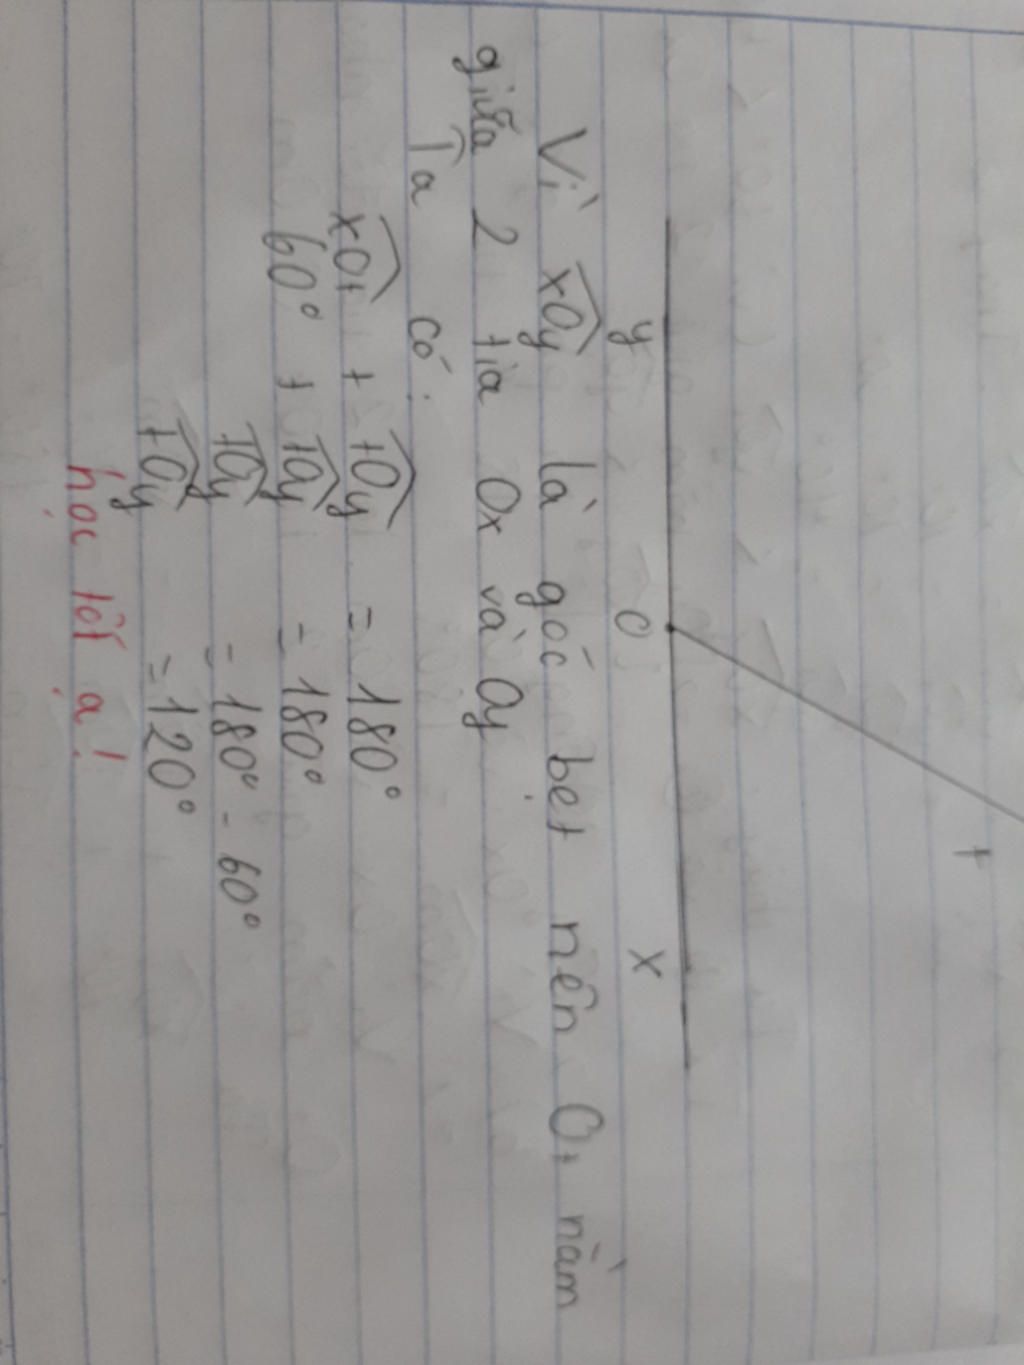 t
y O x
Vì xOy là góc bẹt nên Ot nằm
giữa 2 tia Ox và Oy.
Ta có:
xOt + tOy = 180°
60° + tOy = 180°
tOy = 180° - 60°
tOy = 120°
học tốt ạ!